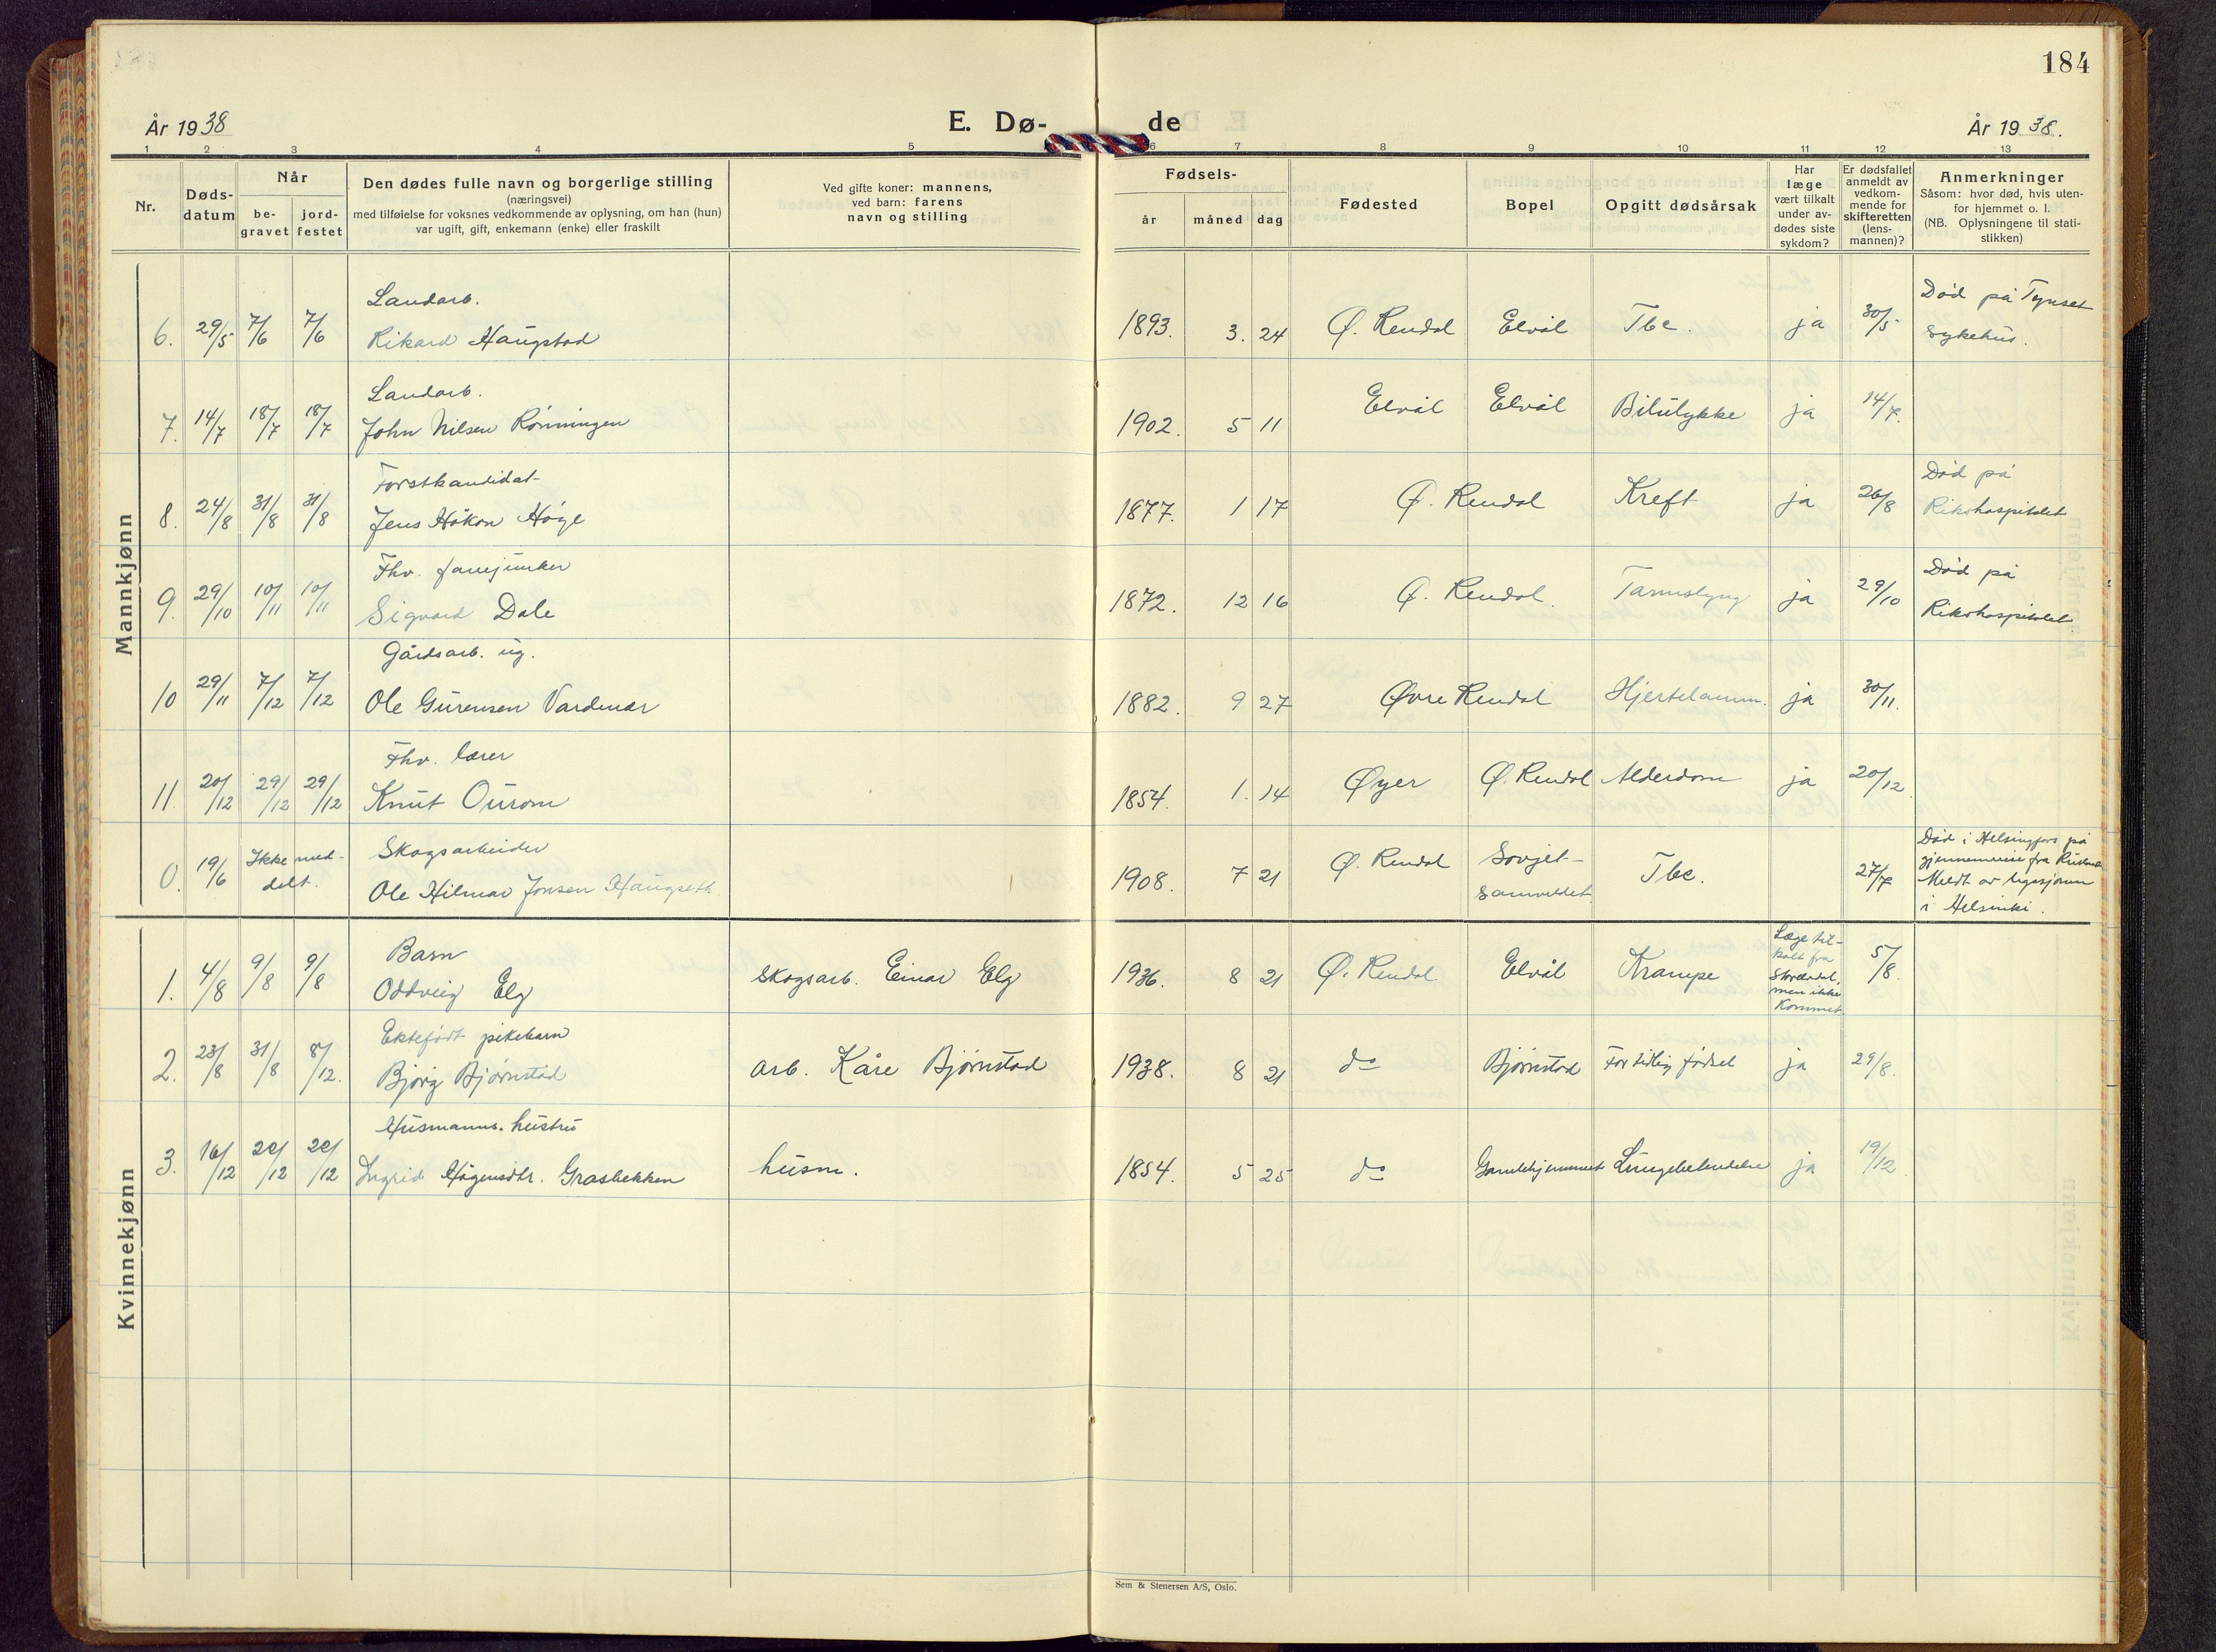 184
År 1938
E. Dø-
de
År 1938.
1 2 3 4 5 6 7 8 9 10 11 12 13
Nr.
Døds-
datum
Når
be-
gravet
jord-
festet
Den dødes fulle navn og borgerlige stilling
(næringsvei)
med tilføielse for voksnes vedkommende av oplysning, om han (hun)
var ugift, gift, enkemann (enke) eller fraskilt
Ved gifte koner: mannens,
ved barn: farens
navn og stilling
Fødsels-
år
måned
dag
Fødested
Bopel
Opgitt dødsårsak
Har
læge
vært tilkalt
under av-
dødes siste
sykdom?
Er dødsfallet
anmeldt av
vedkom-
mende for
skifteretten
(lens-
mannen)?
Anmerkninger
Såsom: hvor død, hvis uten-
for hjemmet o. l.
(NB. Oplysningene til stati-
stikken)
Mannkjønn
Landarb.
6. 29/5 7/6 7/6 Rikard Haugstad 1893. 3. 24 Ø. Rendal Elvål Tbc. ja 30/5 Død på Tynset
sykehus.
Landarb.
7. 14/7 18/7 18/7 John Nilsen Rønningen 1902. 5 11 Elvål Elvål Bilulykke ja 14/7.
Forstkandidat
8. 24/8 31/8 31/8 Jens Håkon Høye 1877. 1 17 Ø. Rendal Kreft ja 26/8 Død på
Rikshospitalet
Fhv. fanejunker
9. 29/10 10/11 10/11 Sigvard Dale 1872. 12 16 Ø. Rendal. Tarmslyng ja 29/10 Død på
Rikshospitalet
Gårdsarb. ug.
10 29/11 7/12 7/12 Ole Gurensen Vardenær 1882. 9 27 Øvre Rendal Hjertelamm. ja 30/11.
Fhv. lærer
11. 20/12 29/12 29/12 Knut Ourom 1854. 1. 14 Øyer Ø. Rendal Alderdom ja 20/12.
Skogsarbeider
0. 19/6 Ikke med-
delt. Ole Hilmar Jonsen Haugseth. 1908. 7 21 Ø. Rendal Sovjet-
samveldet Tbc. 27/7 Død i Helsingfors på
gjennemreise fra Russland
Meldt av legasjonen
i Helsinki.
Kvinnekjønn
Barn
1. 4/8 9/8 9/8 Oddveig Elg skogsarb. Einar Elg 1936. 8 21 Ø. Rendal Elvål Krampe Læge til-
kalt fra
Storelvdal,
men ikke
kommet. 5/8.
Ektefødt pikebarn
2. 23/8 31/8 8/12. Bjørg Bjørnstad arb. Kåre Bjørnstad 1938. 8 21 do Bjørnstad For tidlig fødsel ja 29/8.
Husmanns. hustru
3. 16/12 29/12 29/12 Ingrid Hågensdtr. Grasbekken husm. 1854. 5 25 do Gamlehjemmet Lungebetendelse ja 19/12.
Sem & Stenersen A/S, Oslo.